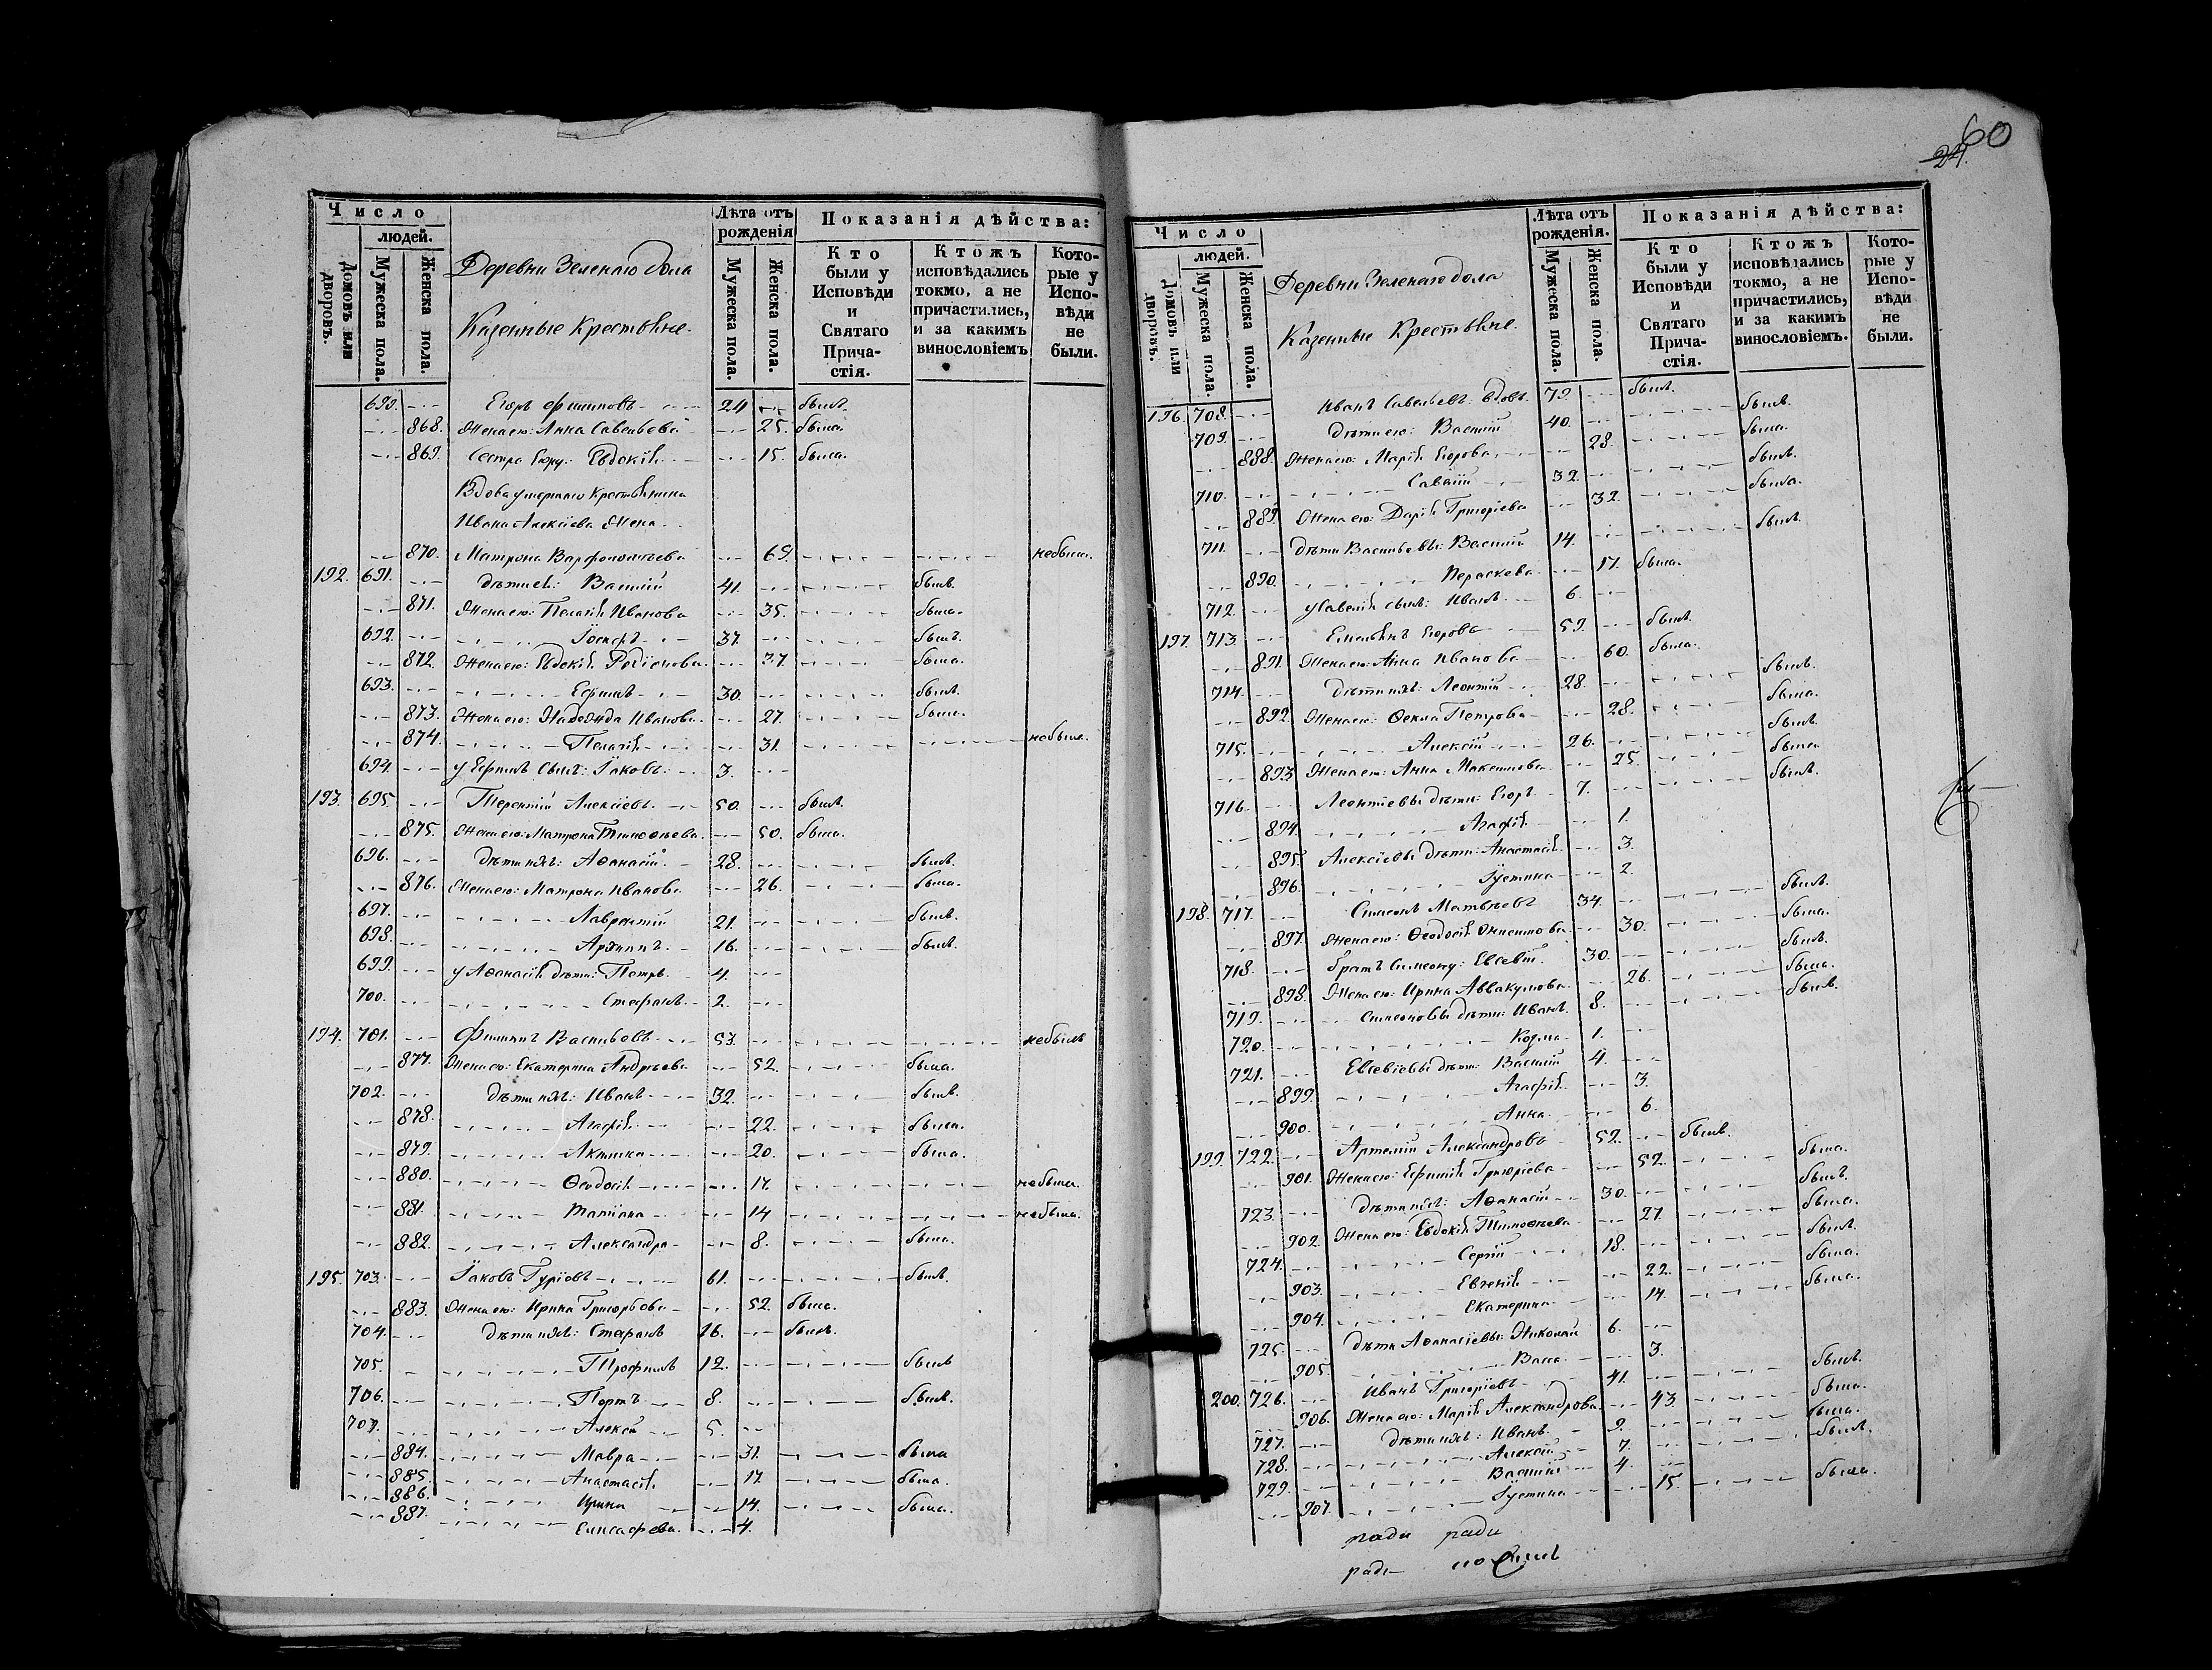 60
24.
Число
людей.
Домовъ или дворовъ.
Мужеска пола.
Женска пола.
Деревни Зеленаго дола
Казенные Крестьяне.
Лѣта отъ рожденія
Мужеска пола.
Женска пола.
Показанія дѣйства:
Кто были у Исповѣди и Святаго Прича-стія.
Ктожъ исповѣдались токмо, а не причастились, и за какимъ винословіемъ
Кото-рые у Испо-вѣди не были.
Егоръ Филиповъ 24 былъ.
868. Жена его: Анна Савельева 25. была
869. Сестра Егору: Евдокія 15. была.
Вдова умершаго Крестьянина
Ивана Алексіева Жена
870. Матрона Варфоломѣева 69. не была.
192. 691. Дѣти ея: Василій 41. былъ.
871. Жена его: Пелагія Иванова 35. была.
692. Іосифъ 37. былъ.
872. Жена его: Евдокія Родіонова 37. была.
693. Ефимъ 30. былъ.
873. Жена его: Надежда Иванова 27. была.
874. Пелагія 31. не была.
694. у Ефима сынъ: Іаковъ 3.
193. 695. Терентій Алексіевъ 50. былъ.
875. Жена его: Матрона Тимоѳеева 50. была.
696. Дѣти ихъ: Аѳанасій 28. былъ.
876. Жена его: Матрона Иванова 26. была.
697. Лаврентій 21. былъ.
698. Архипъ 16. былъ.
699. у Аѳанасія дѣти: Петръ 4.
700. Стефанъ 2.
194. 701. Филипъ Васильевъ 53. не былъ
877. Жена его: Екатерина Андреева 52. была.
702. Дѣти ихъ: Иванъ 32. былъ.
878. Агафія 22. была.
879. Акилина 20. была.
880. Ѳеодосія 17. не была.
881. Татіана 14 не была.
882. Александра 8. была.
195. 703. Іаковъ Гуріевъ 61. былъ.
883. Жена его: Ирина Григорьева 52. была.
704. Дѣти ихъ: Стефанъ 16. былъ.
705. Трофимъ 12. былъ
706. Петръ 8. былъ.
707. Алексѣй 5.
884. Мавра 31. была
885. Анастасія 17. была
886. Ирина 14. была.
887. Елисавета 4.
Число
людей.
Домовъ или дворовъ.
Мужеска пола.
Женска пола.
Деревни Зеленаго дола
Казенные Крестьяне.
Лѣта отъ рожденія.
Мужеска пола.
Женска пола.
Показанія дѣйства:
Кто были у Исповѣди и Святаго Прича-стія.
Ктожъ исповѣдались токмо, а не причастились, и за какимъ винословіемъ.
Кото-рые у Испо-вѣди не были.
196. 708. Иванъ Савельевъ вдовъ 79. былъ.
709. Дѣти его: Василій 40. былъ.
888. Жена его: Марія Егорова 28. была.
710. Савелій 32. былъ.
889. Жена его: Дарія Григоріева 32. была.
711. Дѣти Васильевы: Василій 14. былъ.
890. Параскева 17. была.
712. у Савелія сынъ: Иванъ 6.
197. 713. Емельянъ Егоровъ 59. былъ.
891. Жена его: Анна Иванова 60. была.
714. Дѣти ихъ: Леонтій 28. былъ.
892. Жена его: Ѳекла Петрова 28. была.
715. Алексій 26. былъ.
893. Жена его: Анна Максимова 25. была
716. Леонтіевы дѣти: Егоръ 7. былъ.
894. Агафія 1.
895. Алексіевы дѣти: Анастасія 3.
896. Іустина 2.
198. 717. Симеонъ Матвѣевъ 34. былъ.
897. Жена его: Ѳеодосія Онисимова 30. была.
718. братъ Симеону: Евсевій 30. былъ.
898. Жена его: Ирина Аввакумова 26. была.
719. Симеоновы дѣти: Иванъ 8. былъ.
720. Козма 1.
721. Евсевіевы дѣти: Василій 4.
899. Агафія 3.
900. Анна 6.
199. 722. Артемій Александровъ 52. былъ.
901. Жена его: Ефимія Григоріева 52. была.
723. Дѣти ихъ: Аѳанасій 30. былъ.
902. Жена его: Евдокія Тимоѳеева 27. была.
724. Сергій 18. былъ.
903. Евгенія 22. была.
904. Екатерина 14. была.
725. Дѣти Аѳанасіевы: Николай 6.
905. Васса 3.
200. 726. Иванъ Григоріевъ 41. былъ.
906. Жена его: Марія Александрова 43. была.
727. Дѣти ихъ: Иванъ 9. была.
728. Алексій 7. былъ.
729. Василій 4.
907. Іустина 15. была.
ради ради